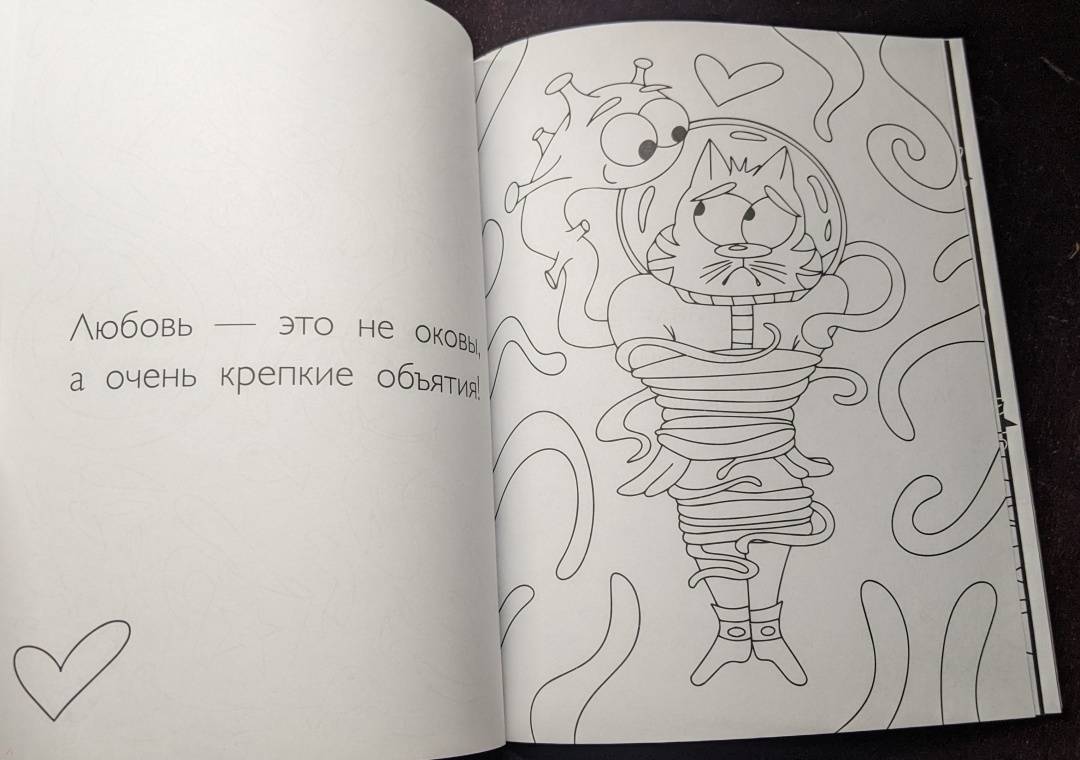 Любовь — это не оковы,
а очень крепкие объятия!